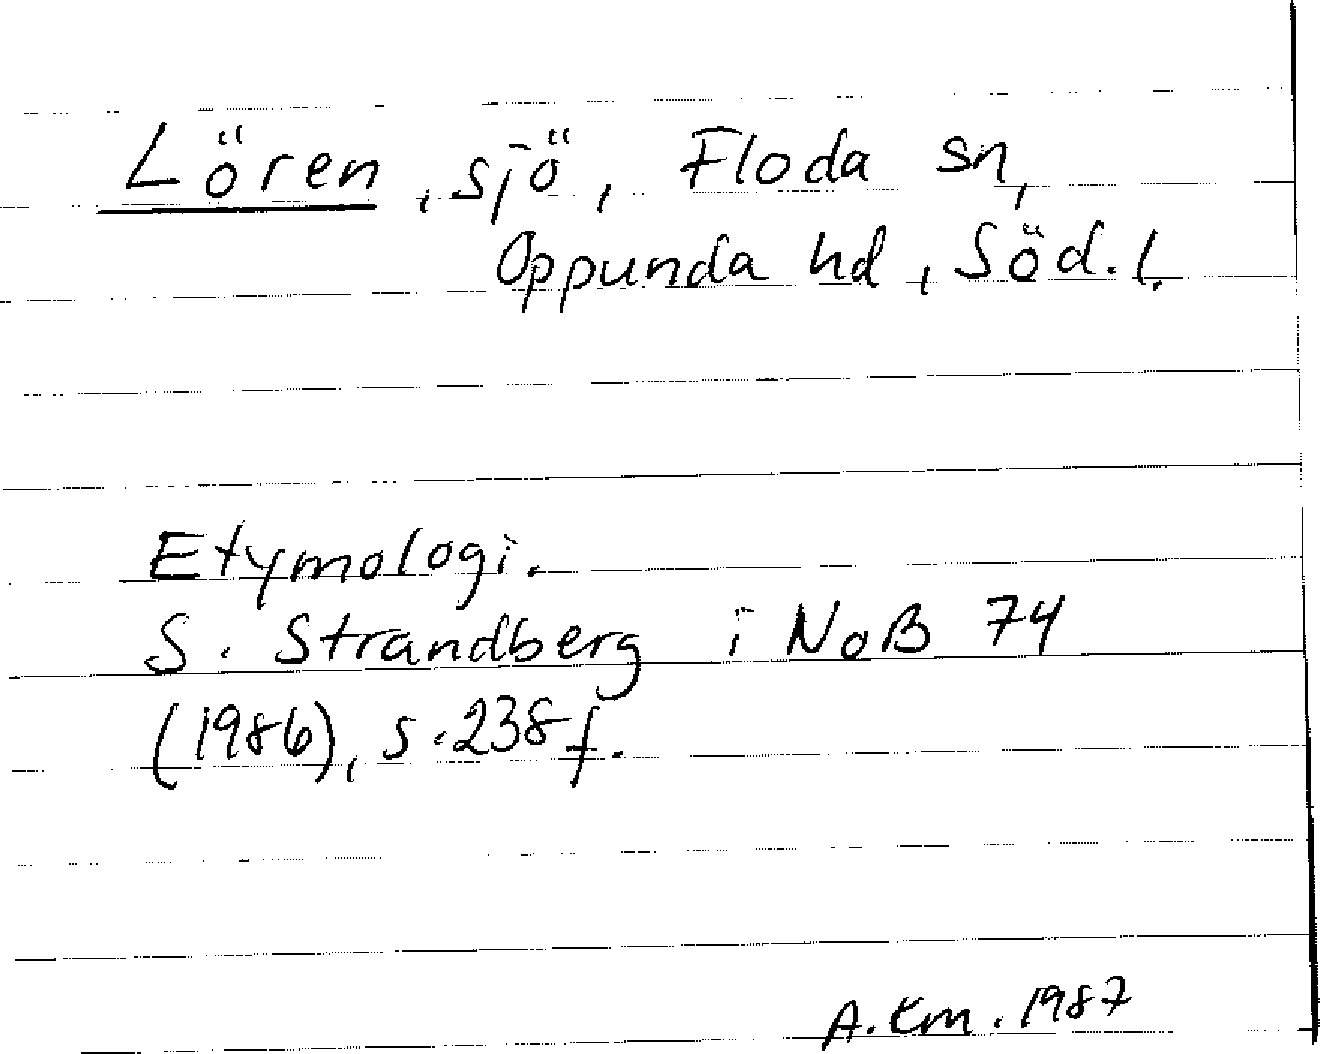 Lören, sjö, Floda sn,
Oppunda hd, Söd.l.
Etymologi.
S. Strandberg i NoB 74
(1986), s.238 f.
A.Em. 1987